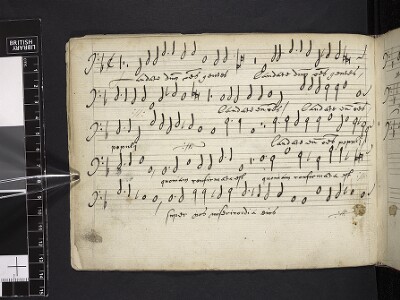 BRITISH LIBRARY
Laudate dnm oēs gentes Laudate dnm oēs gentes
Laudate eum oēs Laudate eum oēs
populi Laudate eum oēs populi
quoniam confirmata est quoniam confirmata est
super nos misericordia eius